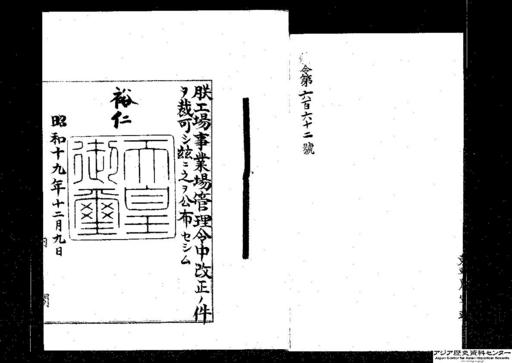 令第六百六十二號
朕工場事業場管理令中改正ノ件
ヲ裁可シ茲ニ之ヲ公布セシム
裕仁
天皇
御璽
昭和十九年十二月九日
内閣
アジア歴史資料センター
Japan Center for Asian Historical Records